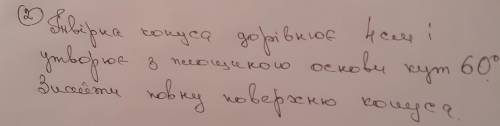 ② Твірна конуса дорівнює 4 см і
утворює з площиною основи кут 60°
Знайти повну поверхню конуса.